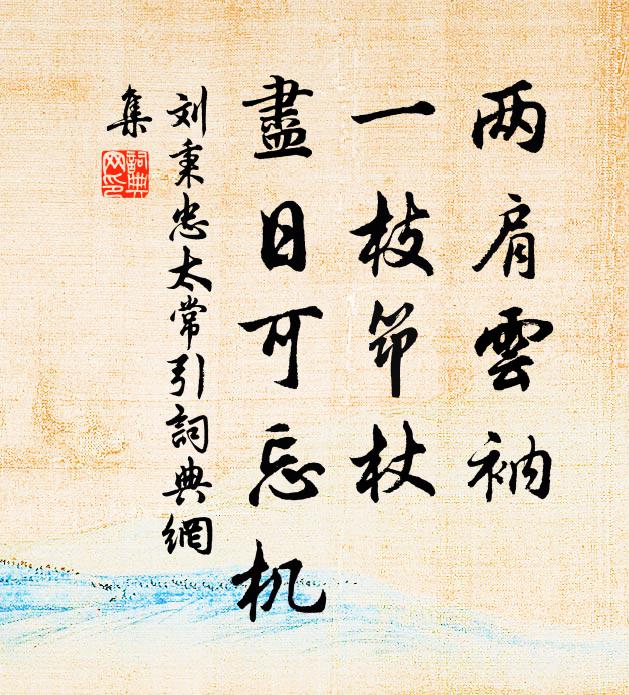 两肩雲衲
一枝筇杖
盡日可忘机
刘秉忠太常引詞典網
集
詞典网印